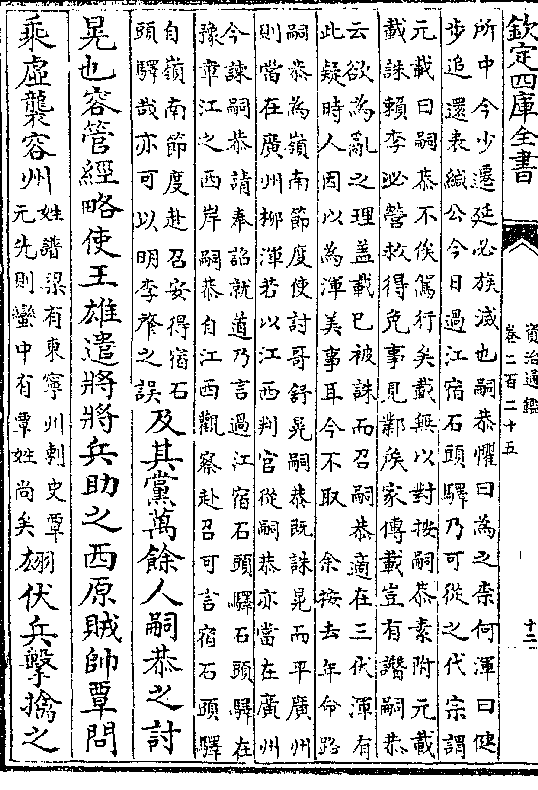 欽定四庫全書
資治通鑑
卷二百二十五
十二
所中今少遷延必族滅也嗣恭懼曰為之柰何渾曰健
步追還表緘公今日過江宿石頭驛乃可從之代宗謂
元載曰嗣恭不俟駕行矣載無以對按嗣恭素附元載
載誅賴李泌營救得免事見鄴侯家傳載豈有譖嗣恭
云欲為亂之理盖載已被誅而召嗣恭適在三伏渾有
此疑時人因以為渾美事耳今不取　余按去年命路
嗣恭為嶺南節度使討哥舒晃嗣恭既誅晃而平廣州
則當在廣州柳渾若以江西判官從嗣恭亦當在廣州
今諫嗣恭請奉詔就道乃言過江宿石頭驛石頭驛在
豫章江之西岸嗣恭自江西觀察赴召可言宿石頭驛
自嶺南節度赴召安得宿石
頭驛哉亦可以明李肇之誤
及其黨萬餘人嗣恭之討
晃也容管經略使王雄遣將將兵助之西原賊帥覃問
乘虛襲容州
姓譜梁有東寧州刺史覃
元先則蠻中有覃姓尚矣
翃伏兵擊擒之